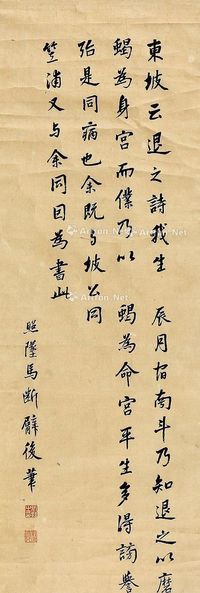 東坡云退之詩我生　辰月宿南斗乃知退之以磨
蝎為身宮而僕乃以　蝎為命宮平生多得謗譽
殆是同病也余既與坡公同
笠浦又与余同因為書此
照墜馬斷臂後筆